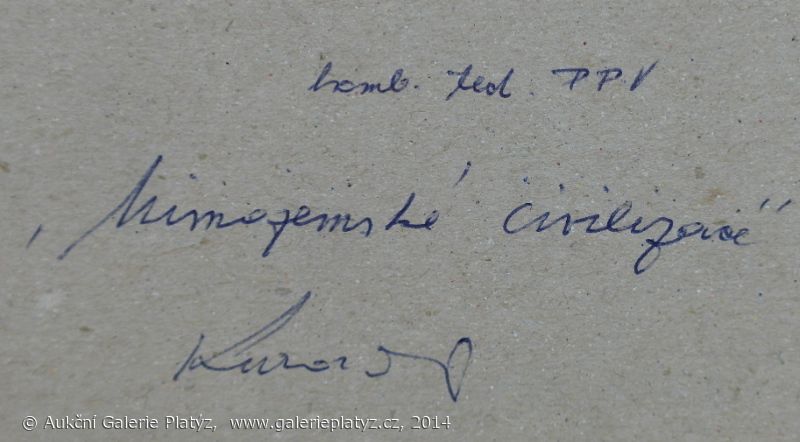 komb. tech. PPV
"Mimozemské civilizace"
© Aukční Galerie Platýz, www.galerieplatyz.cz, 2014